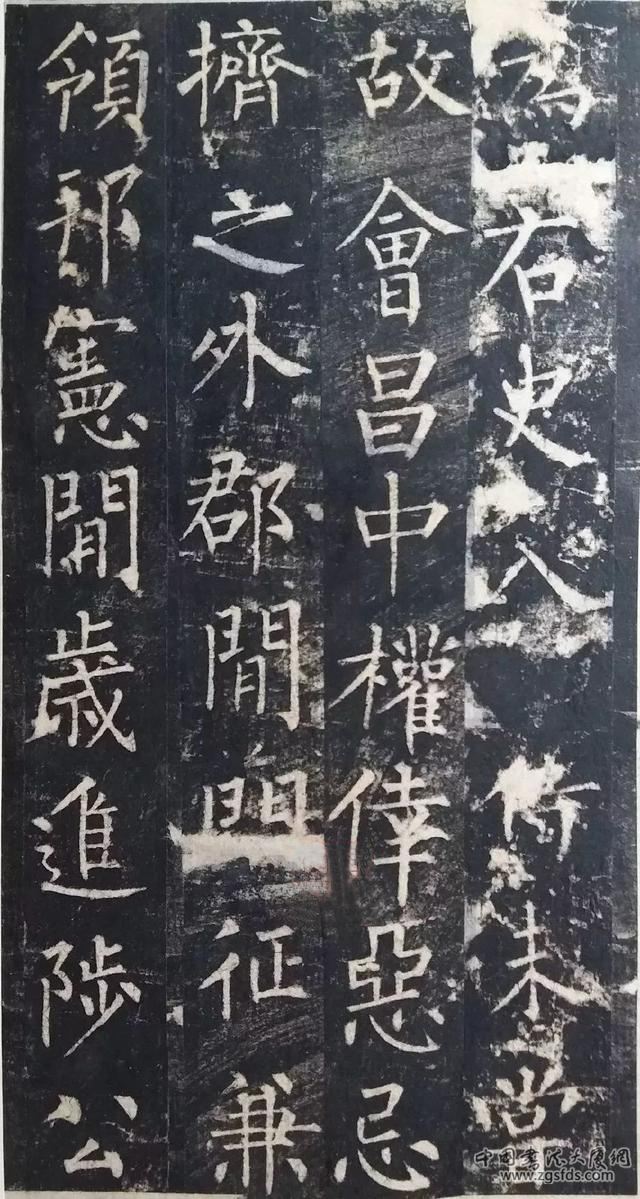 為右史入侍未嘗
故會昌中權倖惡忌
擠之外郡閒征兼
領邦憲閒歲進陟公
中国书法大网
www.zgsfds.com